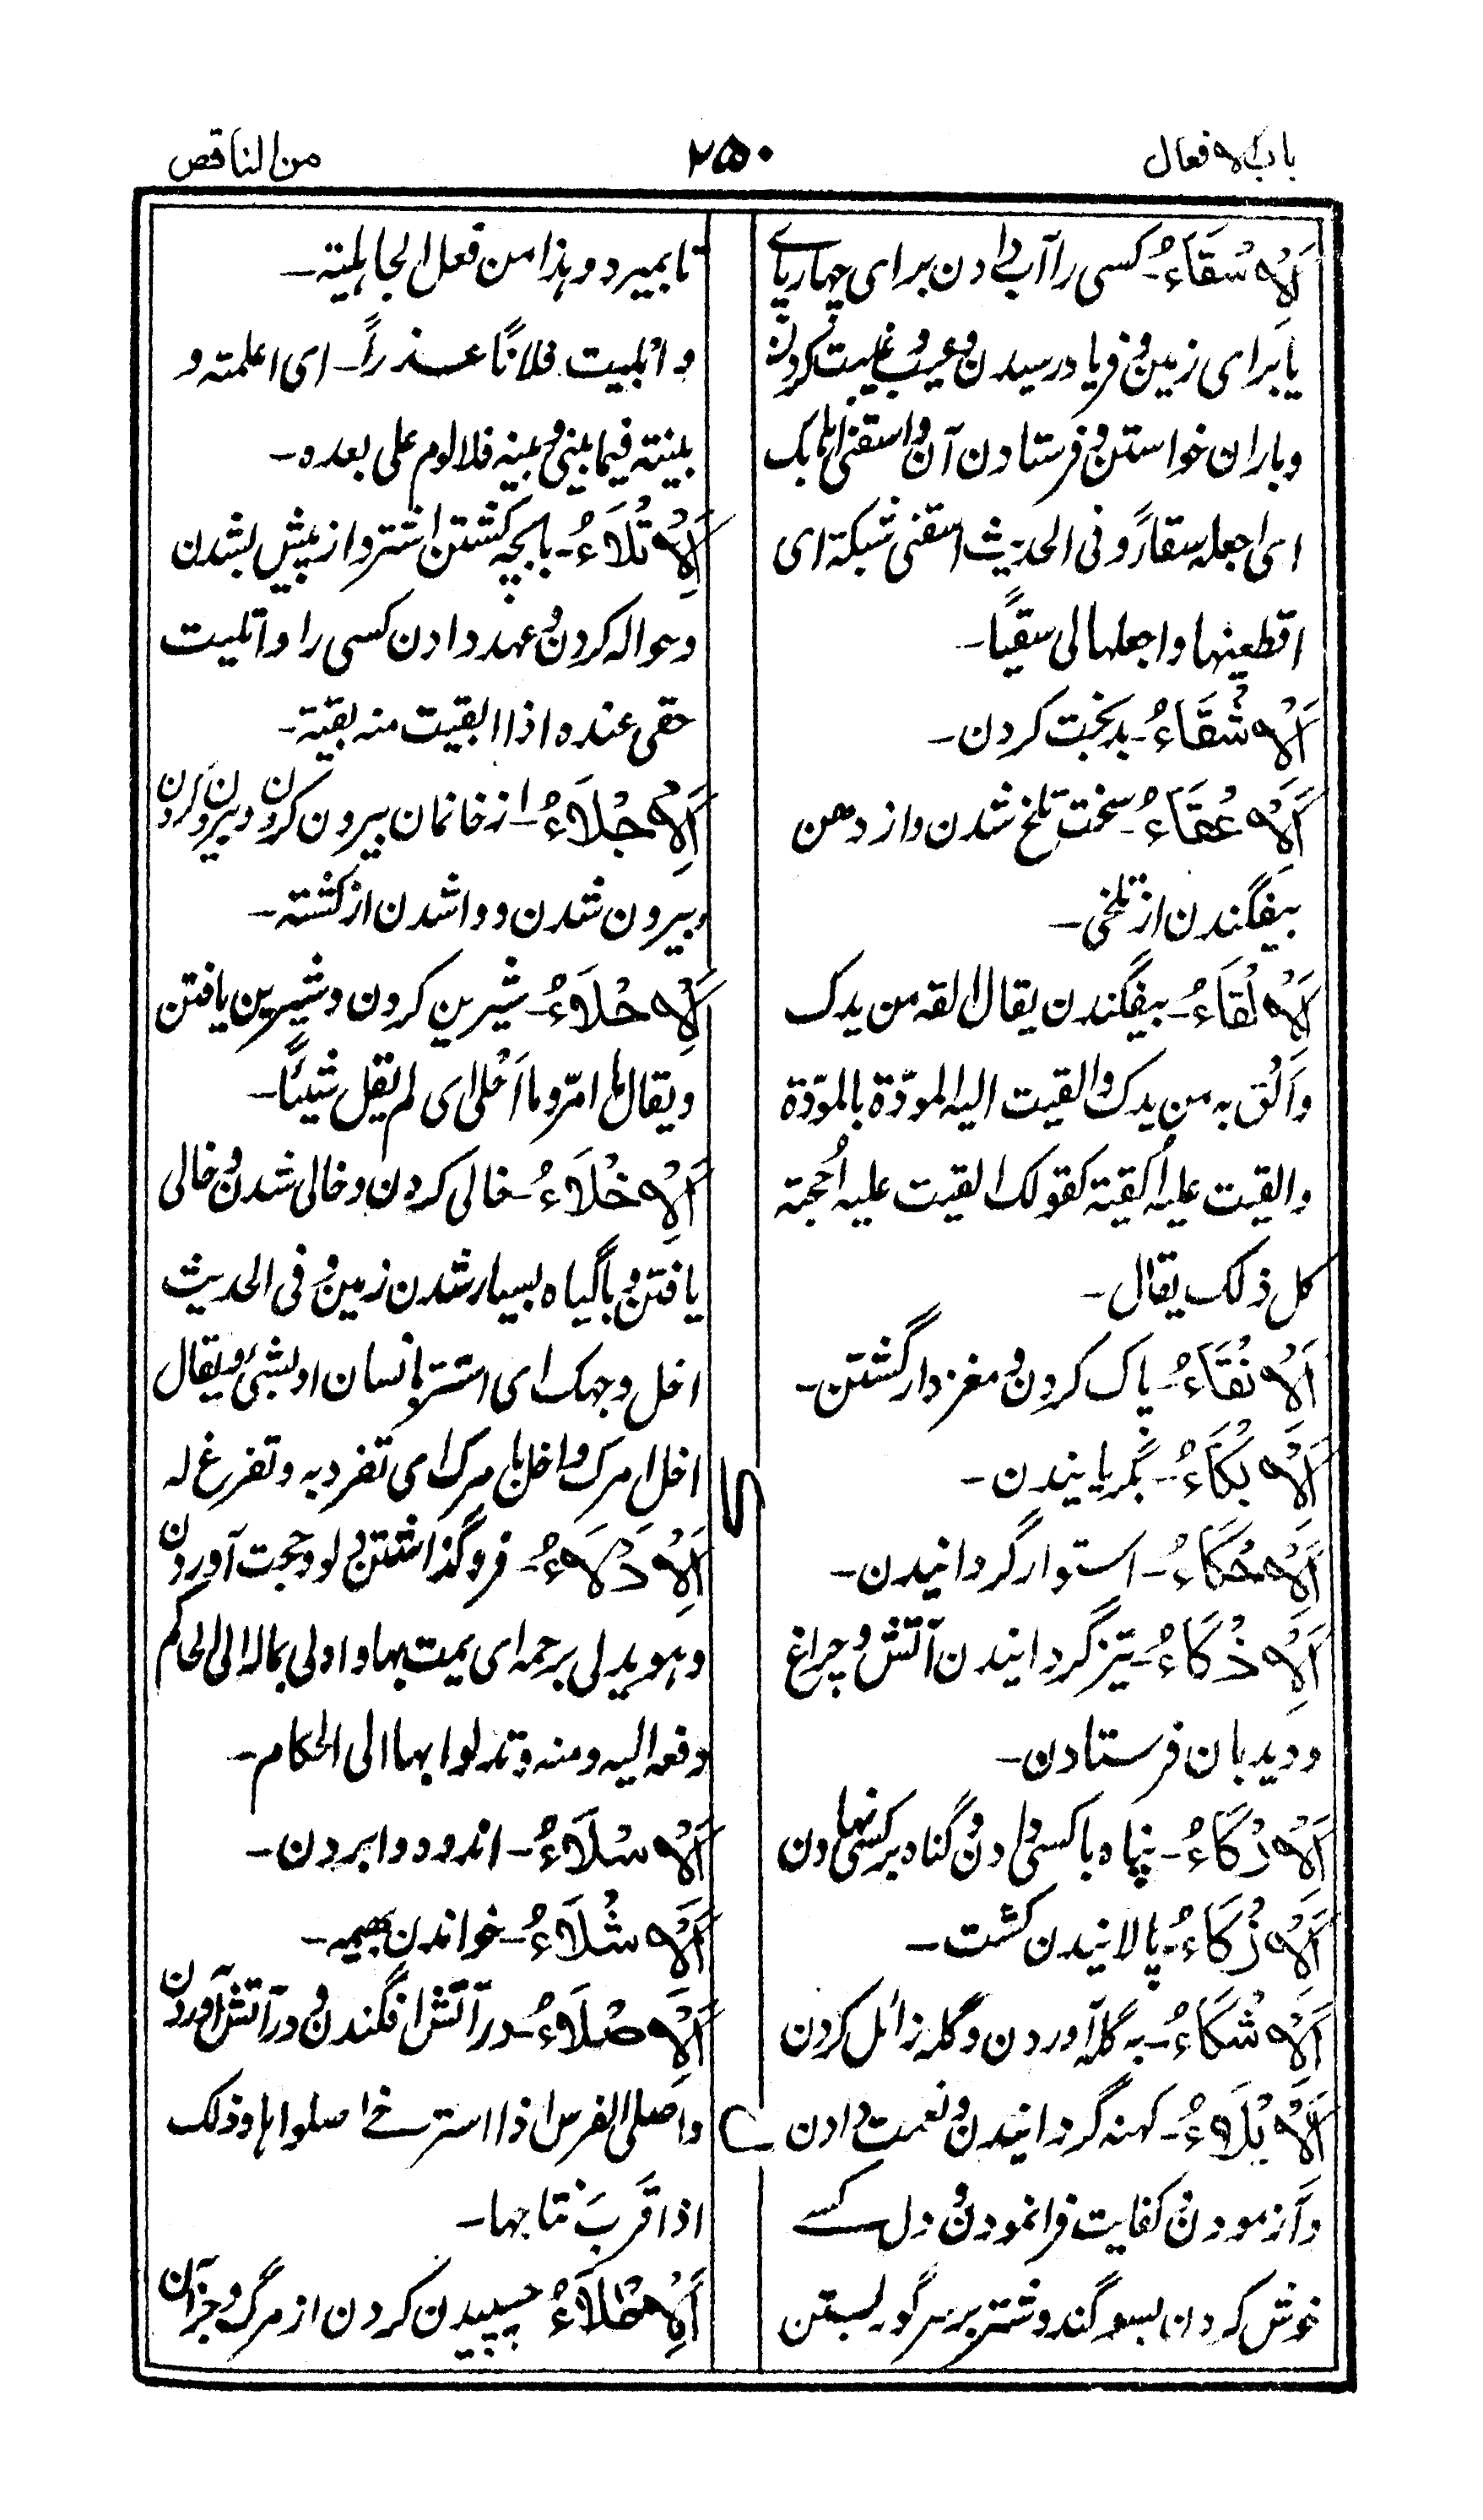 باب الافعال
۲۵۰
من الناقص
اَلْاِسْقَاءُ- کسی را آب دادن برای چهارپاے
یا برای زمین و فریاد رسیدن و عیب و غیبت کردن
و باران خواستن و فرستادن آن و اسقنی اهابک
ای اجعله سقاءً و فی الحدیث اسقنی شبکة ای
اقطعینها و اجعلها لی سقیًا-
اَلْاِشْقَاءُ- بدبخت کردن-
اَلْاِعْقَاءُ- سخت تلخ شدن و از دهن
بیفگندن از تلخی-
اَلْاِلْقَاءُ- بیفگندن یقال القه من یدک
و اَلْقِ به من یدک و القیت الیه المودّة بالمودّة
و القیت علیه اُلقیة کقولک القیت علیه اُحجیة
کل ذلک یقال-
اَلْاِنْقَاءُ- پاک کردن و مغزدار گشتن-
اَلْاِبْکَاءُ- بگریانیدن-
اَلْاِحْکَاءُ- استوار گردانیدن-
اَلْاِذْکَاءُ- تیز گردانیدن آتش و چراغ
و دیدبان فرستادن-
اَلْاِرْکَاءُ- پناه با کسی دادن و گناه بر کسی نهادن
اَلْاِزْکَاءُ- پالانیدن کشت-
اَلْاِشْکَاءُ- به گله آوردن و گله زائل کردن
اَلْاِبْلَاءُ- کهنه گردانیدن و نعمت دادن
و آزمودن و کفایت فرانمودن و دل کسے
خوش کردن بسوگند و شتر بر سر گور بستن
تا بمیرد و هذا من فعل الجاهلیة-
و ابلیت فلانًا عذراً- ای اعلمته و
بینته فیما بینی و بینه فلا لوم علی بعده-
اَلْاِتْلَاءُ- با بچه گشتن اشتر و از پیش بشدن
و حواله کردن و عهد دادن کسی را و اتلیت
حقی عنده اذا ابقیت منه بقیة-
اَلْاِجْلَاءُ- از خانمان بیرون کردن و بیرون کردن
و بیرون شدن و واشدن از کشته-
اَلْاِحْلَاءُ- شیرین کردن و شیرین یافتن
و یقال ما امرّ و ما اَحْلی ای لم یقل شیئًا-
اَلْاِخْلَاءُ- خالی کردن و خالی شدن و خالی
یافتن و با گیاه بسیار شدن زمین و فی الحدیث
اخل وجهک ای استتر بانسان او بشئ و یقال
اخل امرک و اخل بامرک ای تفرد به و تفرغ له
اَلْاِدْلَاءُ- فرو گذاشتن دلو و حجت آوردن
و هو یدلی برحمه ای یمت بها و ادلی بماله الی الحاکم
دفعه الیه و منه و تدلوا بها الی الحکام-
اَلْاِسْلَاءُ- اندوه وابردن-
اَلْاِشْلَاءُ- خواندن بهیمه-
اَلْاِصْلَاءُ- در آتش افگندن و در آتش آوردن
و اصلی الفرس اذا استرخے اصلواها و ذلک
اذا قَرُبَ نتاجها-